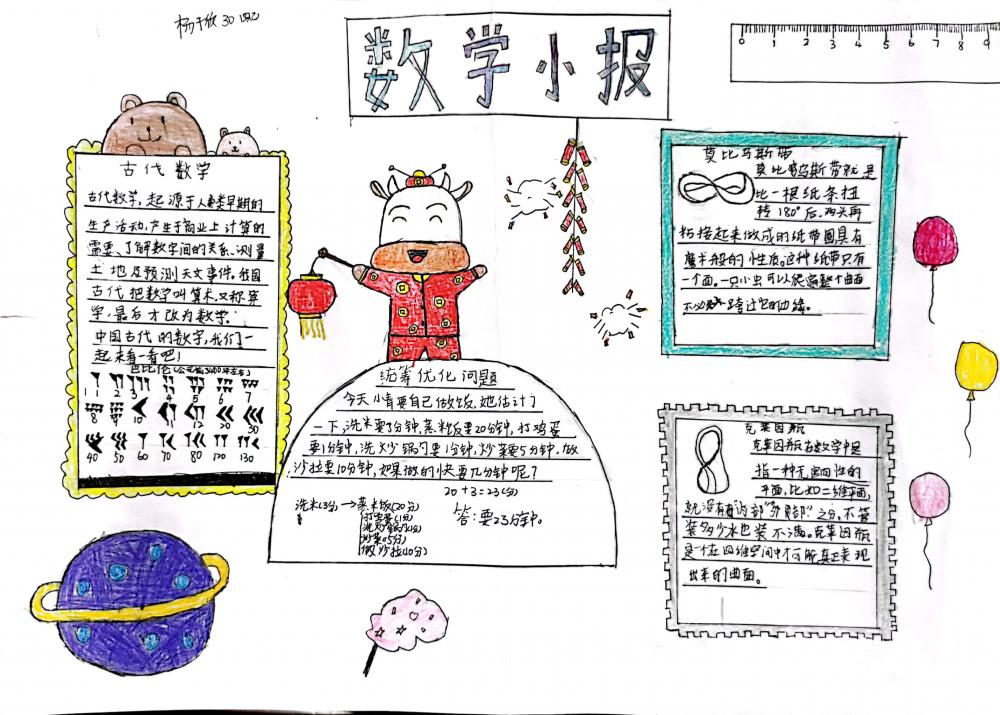 数学小报
0 1 2 3 4 5 6 7 8 9
古代数学
古代数学,起源于人类早期的
生产活动,产生于商业上计算的
需要、了解数字间的关系、测量
土地及预测天文事件。我国
古代把数学叫算术,又称算
学,最后才改为数学。
中国古代的数学,我们一
起来看一看吧!
巴比伦
1 2 3 4 5 6 7
8 9 10 11 12 20 30
40 50 60 70 80 120 130
统筹优化问题
今天小青要自己做饭,她估计了
一下,洗米要3分钟,蒸米饭要20分钟,打鸡蛋
要1分钟,洗炒锅勺要1分钟,炒菜要5分钟,做
沙拉里10分钟,如果做的快要几分钟呢?
20+3=23(分)
答:要23分钟。
洗米(3分)→蒸米饭(20分)
打鸡蛋(1分)
洗炒锅勺(1分)
炒菜(5分)
做沙拉(10分)
莫比乌斯带
莫比乌斯带就是
比一根纸条扭
转180°后,两头再
粘接起来做成的纸带圈,具有
魔术般的性质。这种纸带只有
一个面。一只小虫可以爬遍整个曲面
不必跨过它的边缘。
克莱因瓶
克莱因瓶在数学中是
指一种无定向性的
平面,比如二维平面,
就没有"内部""外部"之分,不管
装多少水也装不满。克莱因瓶
是一个在四维空间中才可能真正表现
出来的曲面。